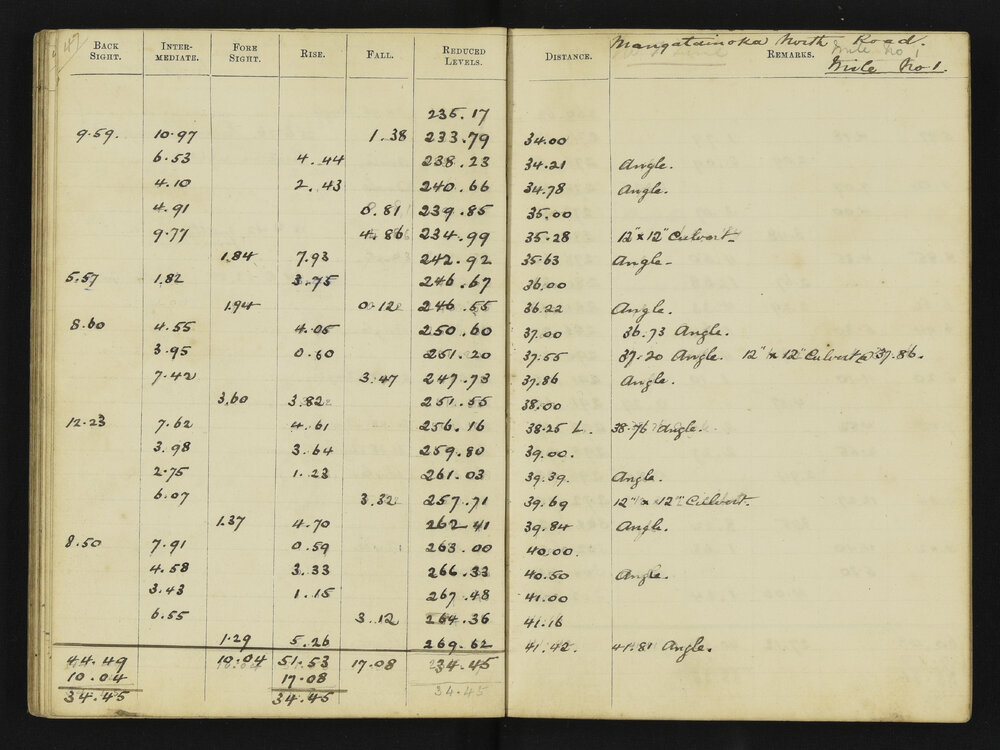 42
BACK SIGHT. INTER-MEDIATE. FORE SIGHT. RISE. FALL. REDUCED LEVELS. DISTANCE. REMARKS.
Mangatainoka North Road.
Mile No 1
Mile No 1.
235.17
9.59. 10.97 1.38 233.79 34.00
6.53 4.44 238.23 34.21 Angle.
4.10 2.43 240.66 34.78 Angle.
4.91 0.81 239.85 35.00
9.77 4.86 234.99 35.28 12"x12" Culvert
1.84 7.93 242.92 35.63 Angle.
5.57 1.82 3.75 246.67 36.00
1.94 0.12 246.55 36.22 Angle.
8.60 4.55 4.05 250.60 37.00 36.73 Angle.
3.95 0.60 251.20 37.55 37.20 Angle. 12"x12" Culvert @ 37.86.
7.42 3.47 247.73 37.86 Angle.
3.60 3.82 251.55 38.00
12.23 7.62 4.61 256.16 38.25 L. 38.76 Angle.
3.98 3.64 259.80 39.00.
2.75 1.23 261.03 39.39. Angle.
6.07 3.32 257.71 39.69 12"x12" Culvert.
1.37 4.70 262.41 39.84 Angle.
8.50 7.91 0.59 263.00 40.00.
4.58 3.33 266.33 40.50 Angle.
3.43 1.15 267.48 41.00
6.55 3.12 264.36 41.16
1.29 5.26 269.62 41.42. 41.81 Angle.
44.49 10.04 51.53 17.08 34.45
10.04 17.08 34.45
34.45 34.45